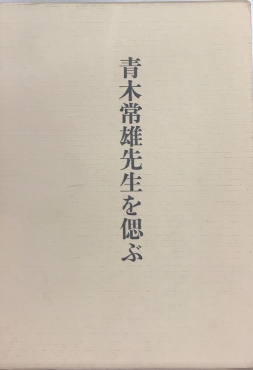 青木常雄先生を偲ぶ